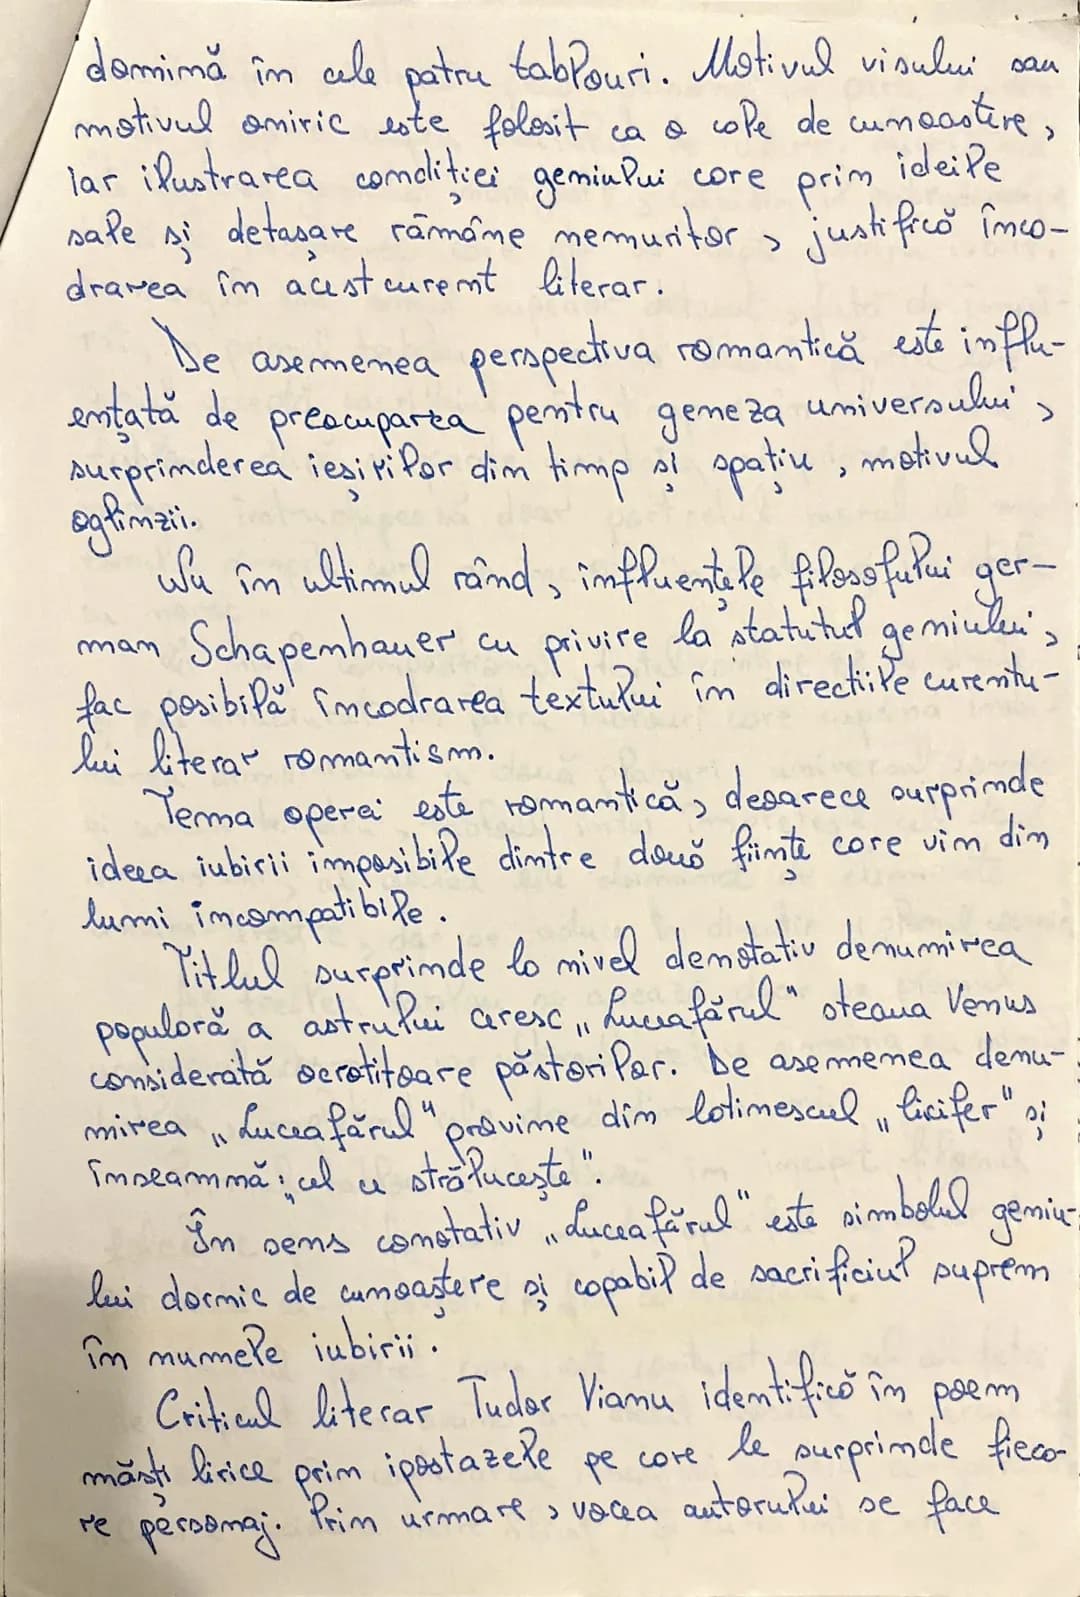 domină în cele patru tablouri. Motivul visului sau
motivul oniric este folosit ca o cale de cunoastere,
iar ilustrarea condiției geniului care prim ideile
sale și detașare rămâne nemuritor, justifică înca-
drarea în acest curent literar.
De asemenea perspectiva romantică este influ-
ențată de preocuparea pentru geneza universului,
surprinderea ieșirilor din timp și spațiu, motivul
oglinzii.
Nu în ultimul rând, influențele filosofului ger-
man Schapenhauer cu privire la statutul geniului,
fac posibilă încadrarea textului în directiile curentu-
lui literar romantism.
Tema operei este romantică, deoarece surprinde
ideea iubirii imposibile dintre două ființe care vin din
lumi incompatibile.
Titlul surprinde la nivel denotativ denumirea
populară a astrului ceresc „Luceafărul" steaua Venus
considerată ocrotitoare păstorilor. De asemenea denu-
mirea „Luceafărul" provine din latinescul „licifer" și
înseamnă: „cel ce strălucește".
În sens conotativ „Luceafărul" este simbolul geniu-
lui dornic de cunoaștere și capabil de sacrificiul suprem
în numele iubirii.
Criticul literar Tudor Vianu identifică în poem
măști lirice prin ipostazele pe care le surprinde fieca-
re personaj. Prin urmare, vocea autorului se face